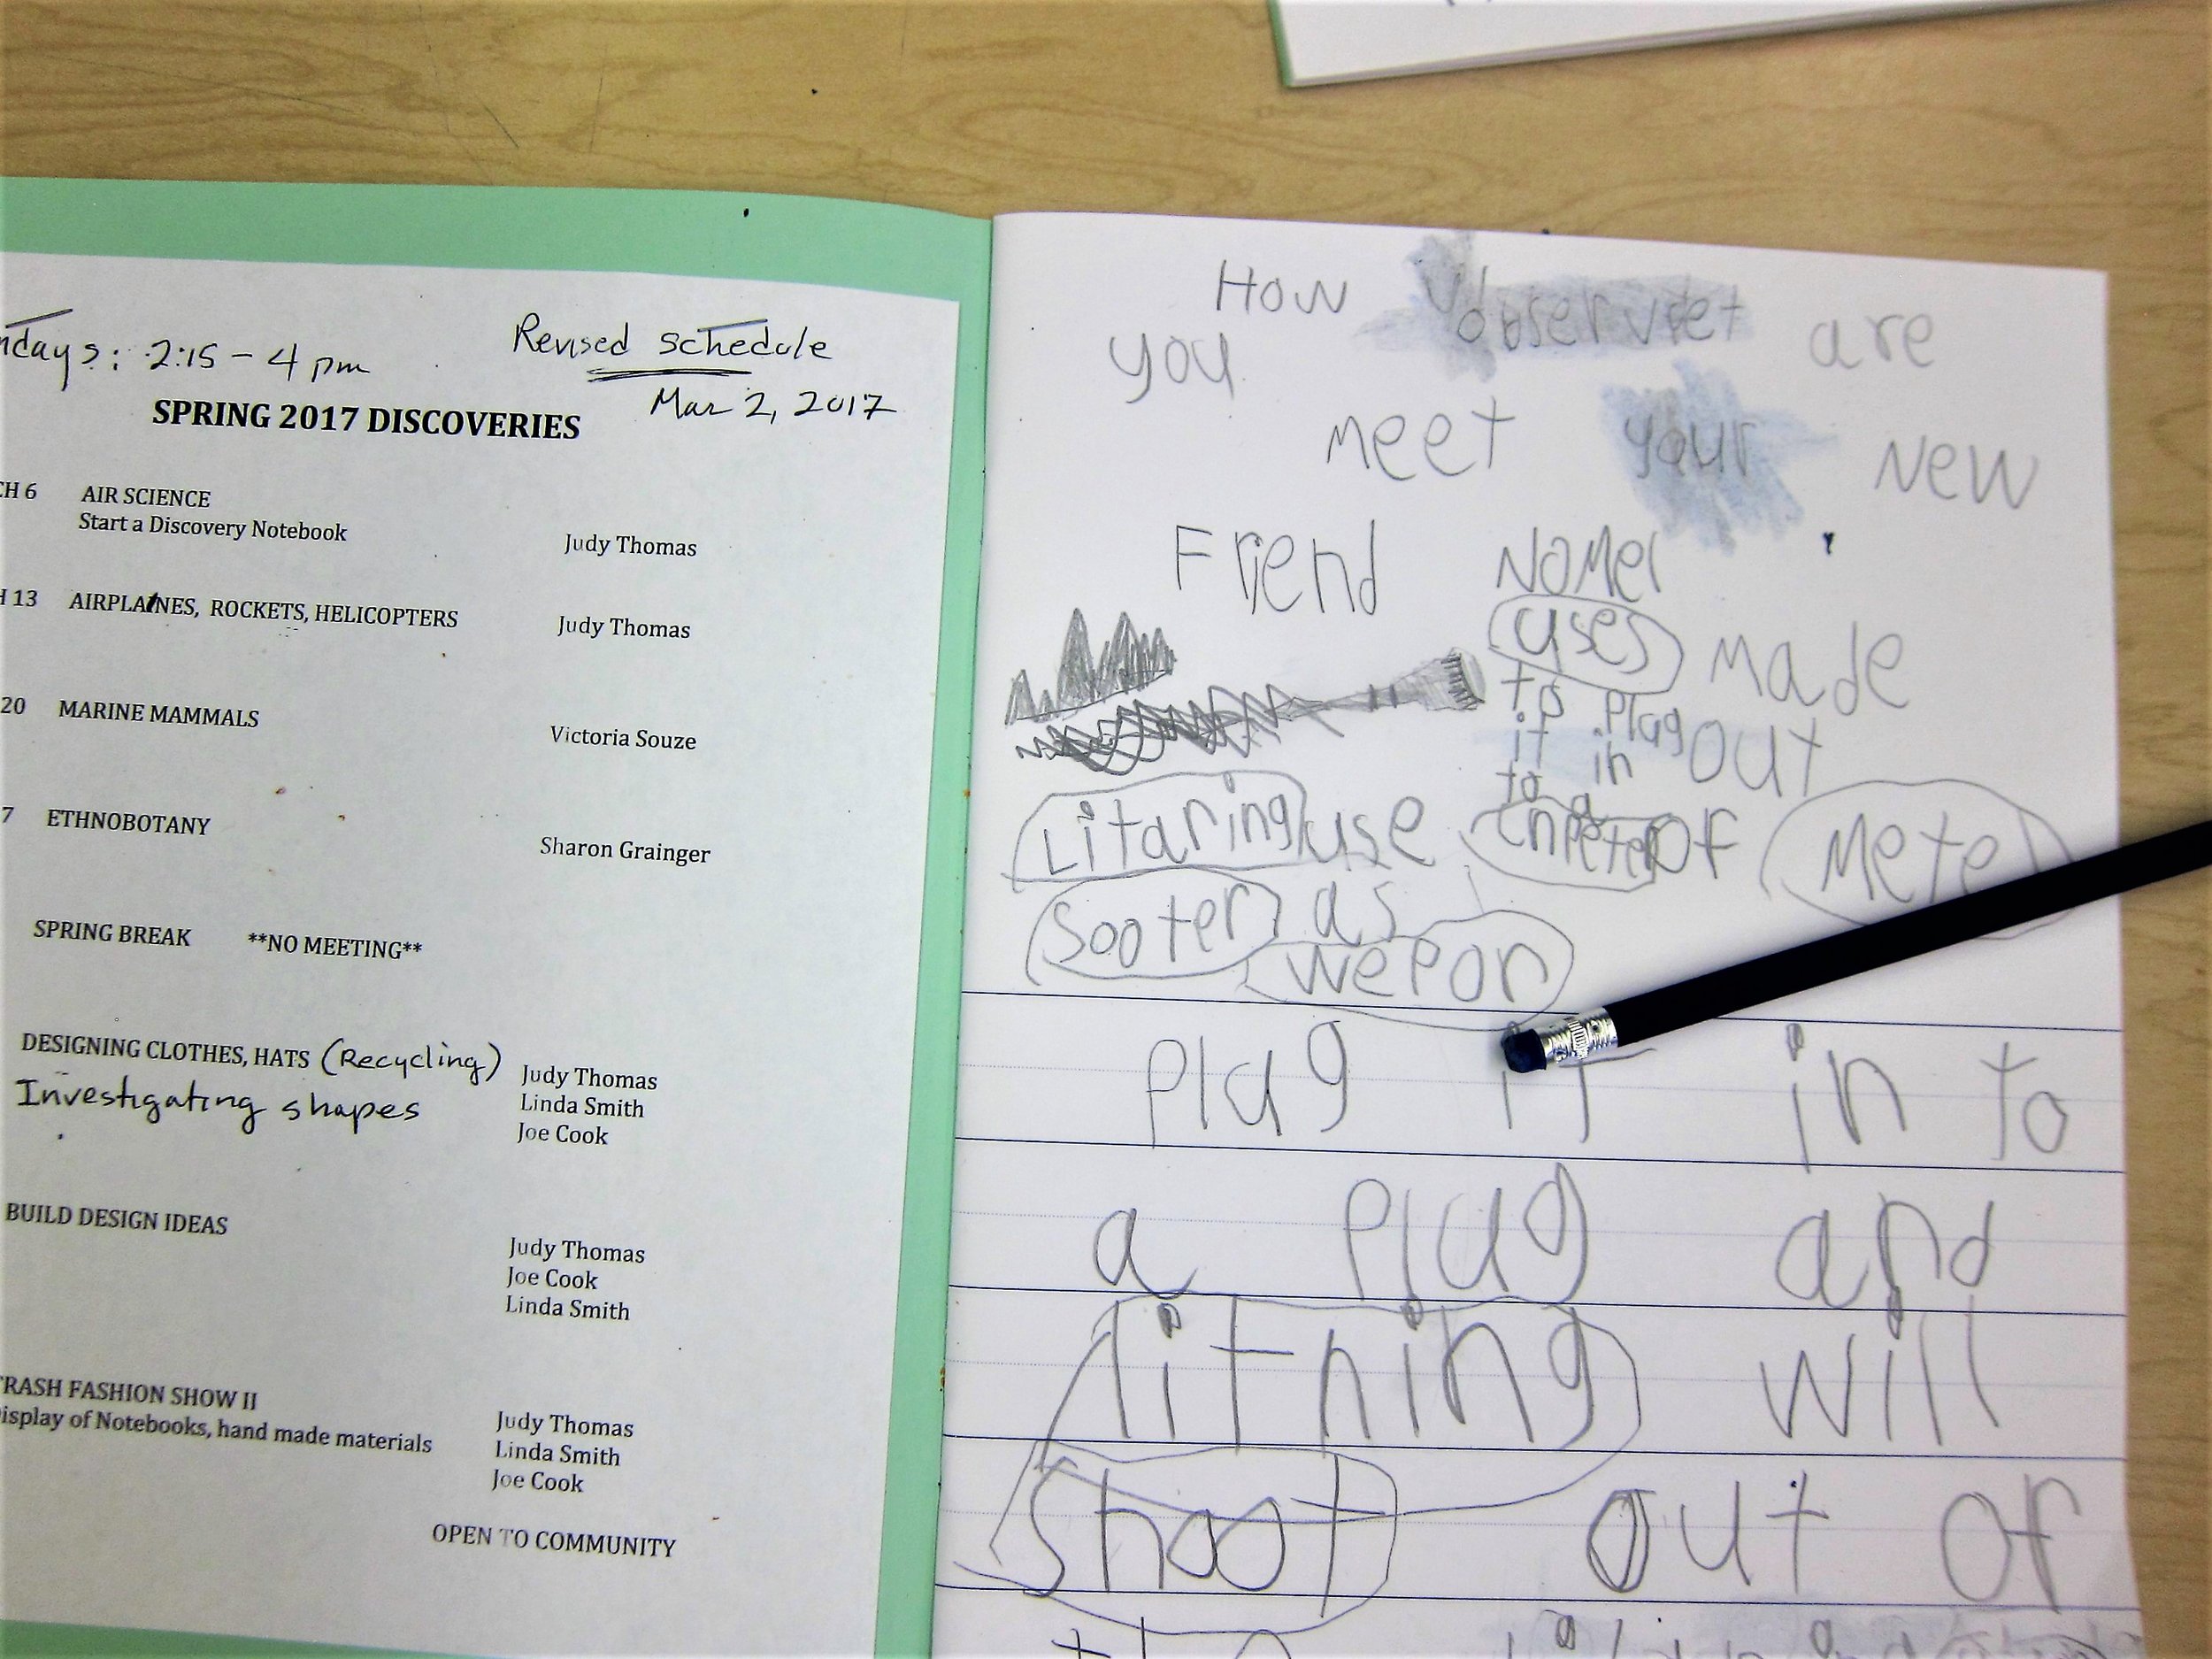 ndays: 2:15 - 4 pm
Revised schedule
Mar 2, 2017
SPRING 2017 DISCOVERIES
CH 6 AIR SCIENCE
Start a Discovery Notebook Judy Thomas
H 13 AIRPLANES, ROCKETS, HELICOPTERS Judy Thomas
20 MARINE MAMMALS Victoria Souze
7 ETHNOBOTANY Sharon Grainger
SPRING BREAK **NO MEETING**
DESIGNING CLOTHES, HATS (Recycling) Judy Thomas
Investigating shapes Linda Smith
Joe Cook
BUILD DESIGN IDEAS Judy Thomas
Joe Cook
Linda Smith
TRASH FASHION SHOW II Judy Thomas
isplay of Notebooks, hand made materials Linda Smith
Joe Cook
OPEN TO COMMUNITY
How are
you
meet your New
Friend
uses made
to plag
it in out
to a
Litaring use of Mete
Sooter as
wepon
plug it in to
a plug and
litning will
shoot out of